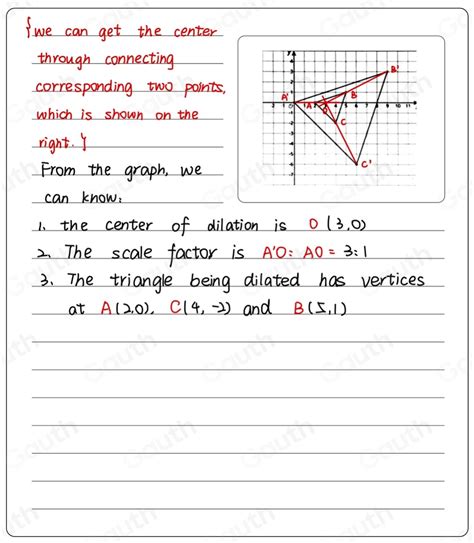 {we can get the center
through connecting
corresponding two points,
which is shown on the
right.}
From the graph, we
can know:
1. the center of dilation is O (3,0)
2. The scale factor is A'O: AO = 3:1
3. The triangle being dilated has vertices
at A(2,0), C(4,-2) and B(5,1)
A'
B'
A
B
C
C'
Gauth